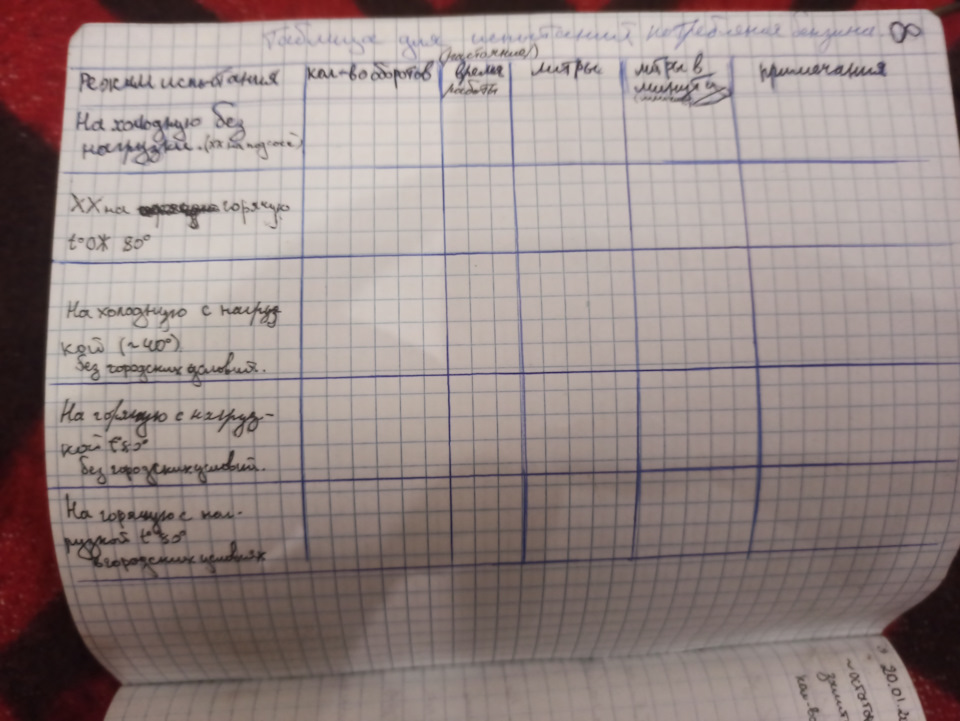 Таблица для испытаний потребления бензина.
Режим испытания
кол-во оборотов
(расстояние)
время
работы
литры
литры в
минуту
примечания
На холодную без
нагрузки. (ХХ на подсосе)
ХХ на горячую
t°ОЖ 80°
На холодную с нагруз
кой (~40°)
без городских условий.
На горячую с нагруз-
кой t°80°
без городских условий.
На горячую с наг-
рузкой t°80°
в городских условиях
20.01.2
кол-во